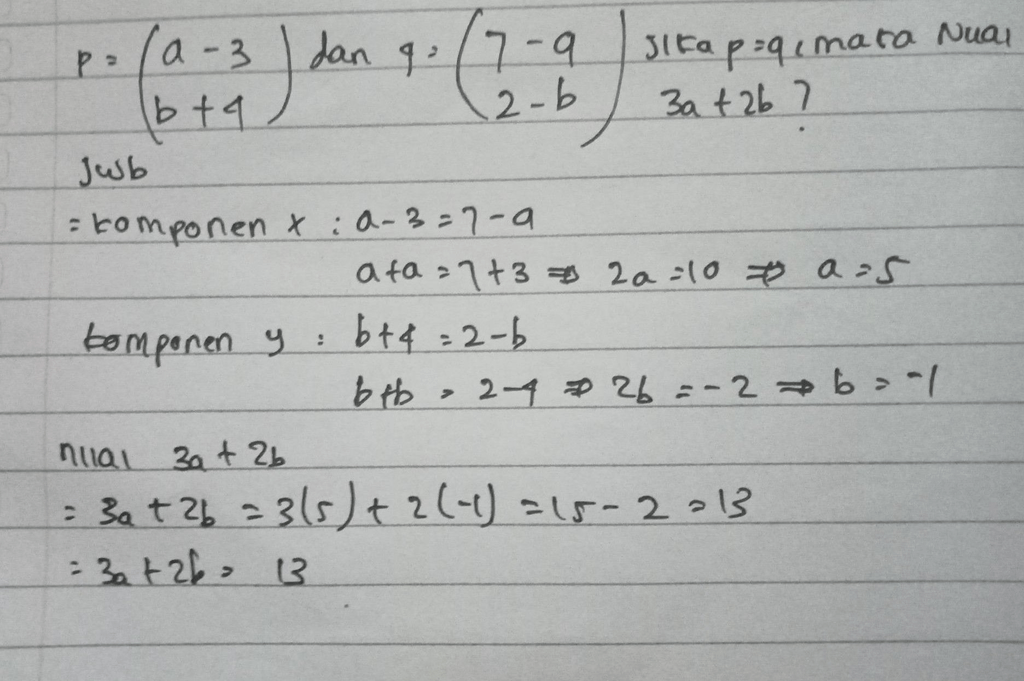 p = (a - 3) dan q = (7 - a) Jika p = q, maka Nilai
(b + 4) (2 - b) 3a + 2b ?
Jwb
= komponen x : a - 3 = 7 - a
a + a = 7 + 3 ⇒ 2a = 10 ⇒ a = 5
komponen y : b + 4 = 2 - b
b + b = 2 - 4 ⇒ 2b = -2 ⇒ b = -1
nilai 3a + 2b
= 3a + 2b = 3(5) + 2(-1) = 15 - 2 = 13
= 3a + 2b = 13